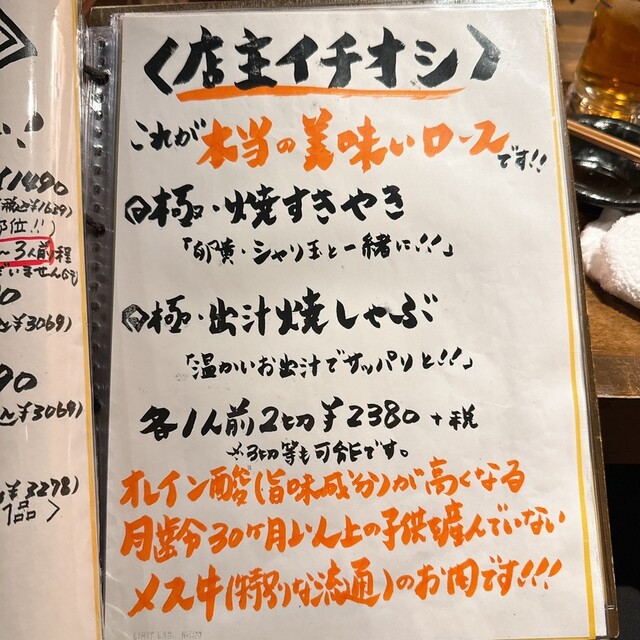 〈店主イチオシ〉
これが本当の美味いロースです!!
極・焼すきやき
「卵黄・シャリ玉と一緒に!!」
極・出汁焼しゃぶ
「温かいお出汁でサッパリと!!」
各1人前2切¥2380+税
※3切等も可能です。
オレイン酸(旨味成分)が高くなる
月齢30ヶ月以上の子供を産んでいない
メス牛(特別な流通)のお肉です!!!
¥1490
(税込¥1639)
部位!!)
〜3人前程
ございませんが
90
¥3069)
90
¥3069)
¥3278)
1品〉